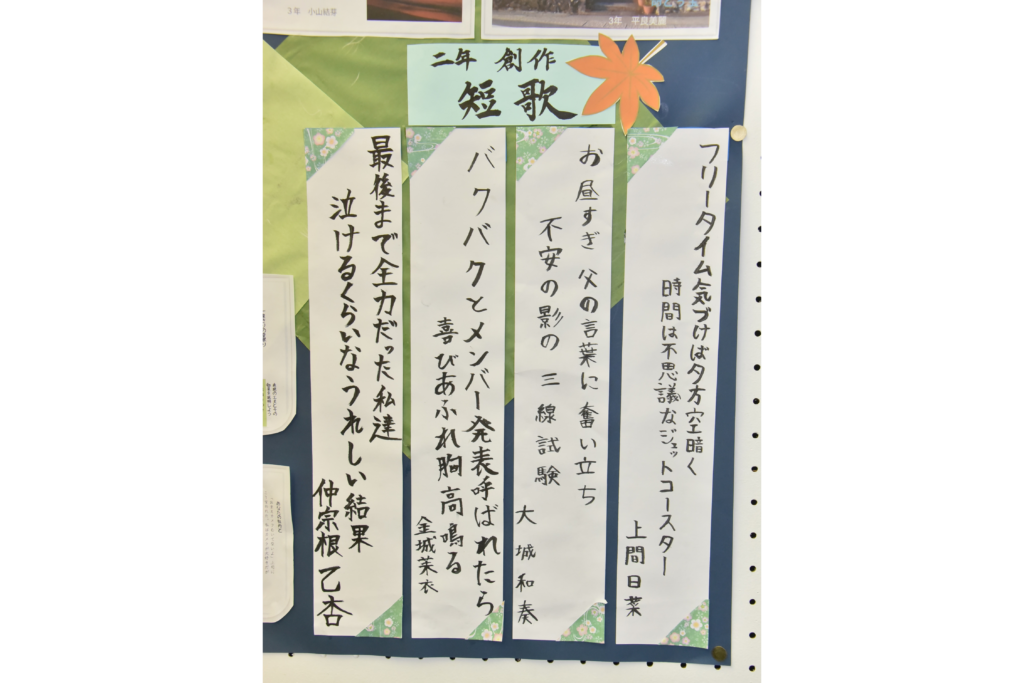 3年 小山結芽
3年 平良美麗
二年 創作
短歌
フリータイム気づけば夕方空暗く
時間は不思議なジェットコースター
上間日葉
お昼すぎ 父の言葉に奮い立ち
不安の影の 三線試験
大城和奏
バクバクとメンバー発表呼ばれたら
喜びあふれ胸高鳴る
金城茉衣
最後まで全力だった私達
泣けるくらいなうれしい結果
仲宗根 乙杏